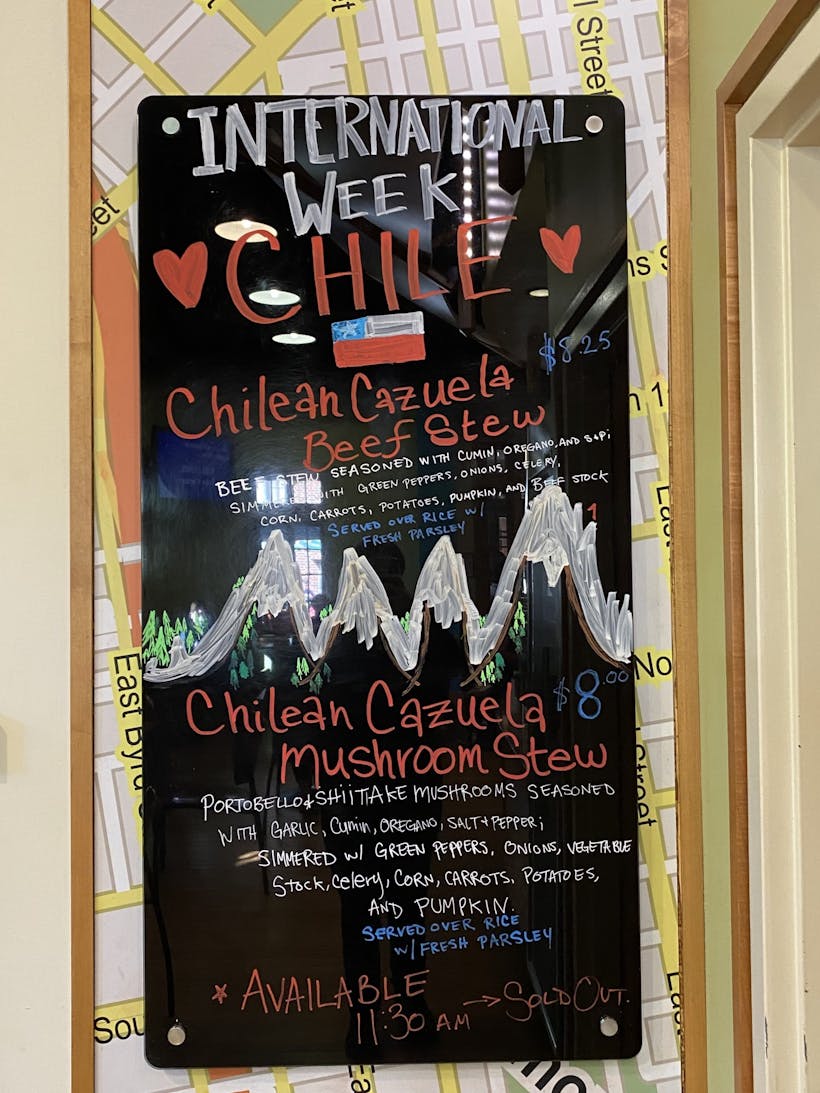 l Street
INTERNATIONAL
WEEK
CHILE
$8.25
Chilean Cazuela
Beef Stew
BEEF STEW SEASONED WITH CUMIN, OREGANO, AND S+P;
SIMMERED WITH GREEN PEPPERS, ONIONS, CELERY,
CORN, CARROTS, POTATOES, PUMPKIN, AND BEEF STOCK
SERVED OVER RICE W/
FRESH PARSLEY
$8.00
Chilean Cazuela
Mushroom Stew
PORTOBELLO & SHIITAKE MUSHROOMS SEASONED
WITH GARLIC, Cumin, OREGANO, SALT + PEPPER;
SIMMERED W/ GREEN PEPPERS, ONIONS, VEGETABLE
Stock, celery, CORN, CARROTS, POTATOES,
AND PUMPKIN.
SERVED OVER RICE
W/ FRESH PARSLEY
* AVAILABLE
11:30 AM → SOLD OUT.
eet
ns S
n 1
No
East Byrd
Street
Sou
East
Ea